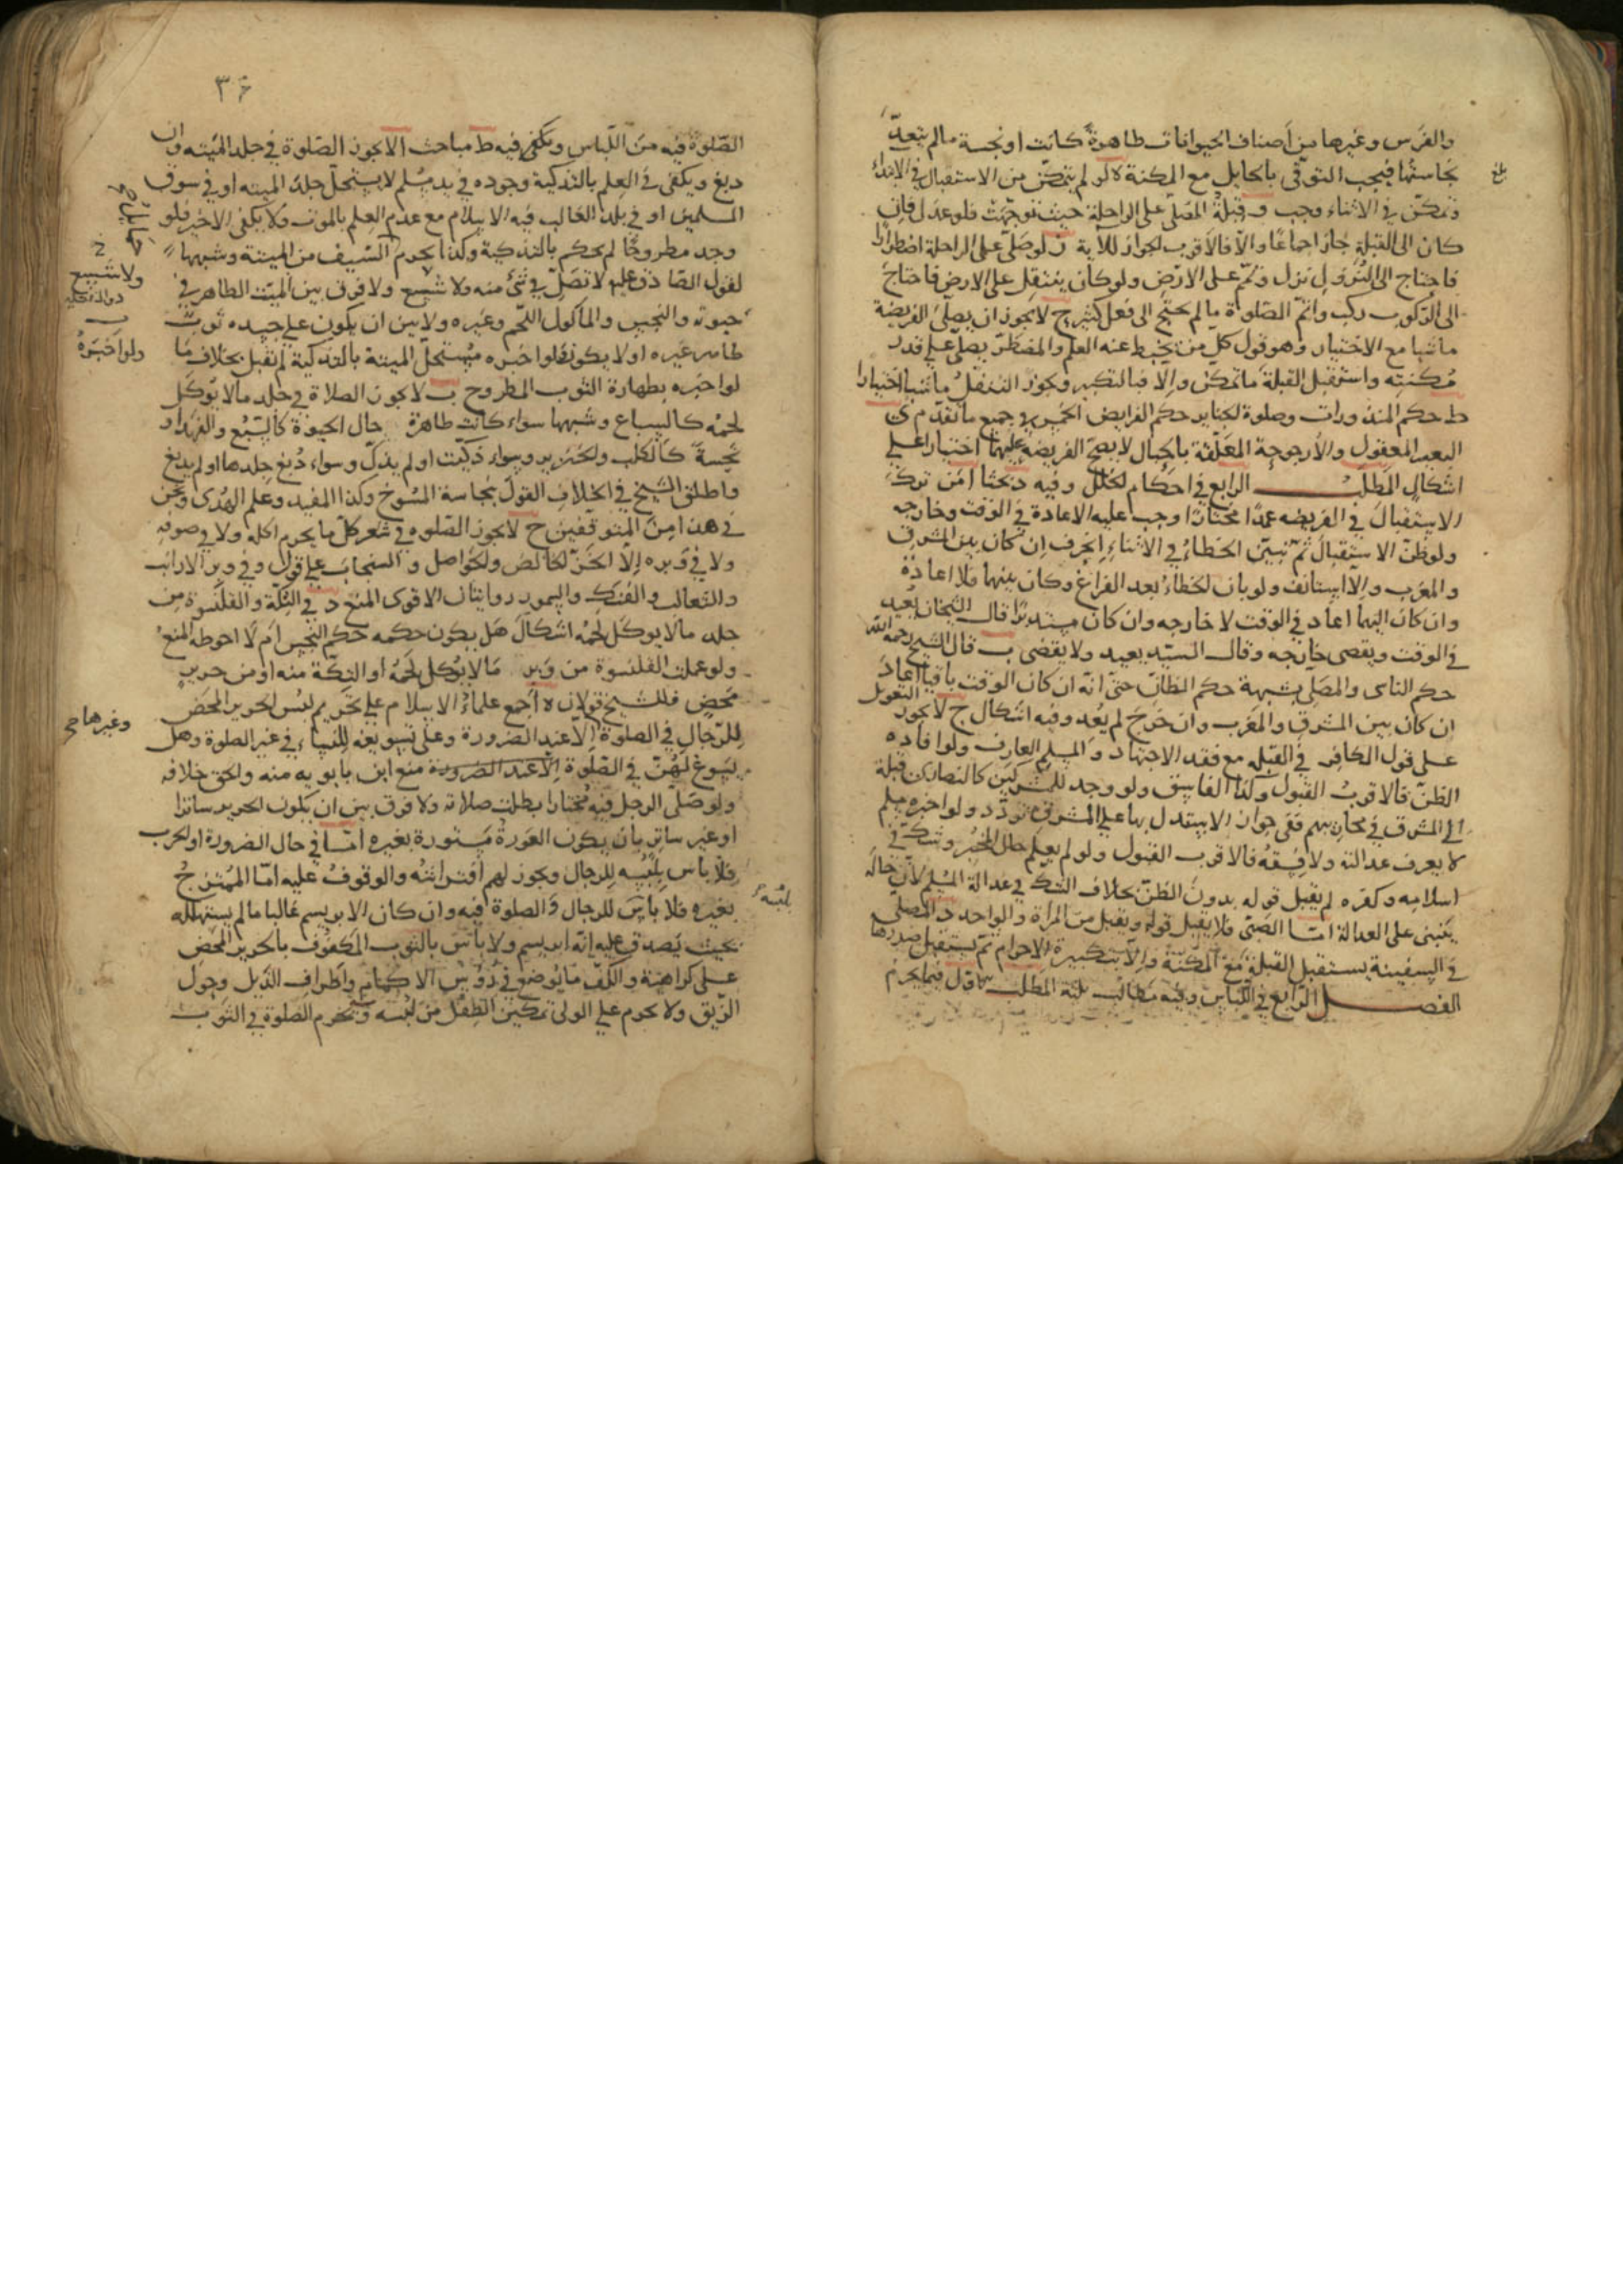 والفرس وغيرها من أصناف الحيوانات طاهرة كانت او نجسة مالم يتعدّ
نجاستها فيجب التوقّى بالحايل مع المكنة ه لو لم يتمكّن من الاستقبال في الابتداء
وتمكّن في الاثناء وجب و قبلة المصلّى على الراحلة حيث توجّهت فلو عدل فان
كان الى القبلة جاز اجماعًا والّا فالاقرب الجواز للآية ز لو صلّى على الراحلة اضطرارًا
فاحتاج الى النزول نزل وتمّم على الارض ولو كان يتنقل على الارض فاحتاج
الى الركوب ركب واتمّ الصلوة مالم يحتج الى فعل كثير ح لا يجوز ان يصلّى الفريضة
ماشيا مع الاختيار وهو قول كل من يحفظ عنه العلم والمضطرّ يصلّى على قدر
مُكنته واستقبل القبلة ما تمكن والا فبالتكبير ويجوز التنفل ماشيا اختيارا
ط حكم المنذورات وصلوة الجنايز حكم الفرايض الخمس في جميع ما تقدّم ى
البعير المعقول والارجوحة المعلّقة بالحبال لا يصحّ الفريضه عليهما اختيارا على
اشكال المطلب الرابع في احكام الخلل وفيه د بحثا ا من ترك
الاستقبال في الفريضه عمدًا مختارًا وجب عليه الاعادة في الوقت وخارجه
ولو ظنّ الاستقبال ثم تبيّن الخطاء في الاثناء انحرف ان كان بين المشرق
والمغرب والّا استانف ولو بان الخطاء بعد الفراغ وكان بينهما فلا اعادة
وان كان اليهما اعاد في الوقت لا خارجه وان كان مستدبرًا قال الشيخان يعيد
في الوقت ويقضى خارجه وقال السيّد يعيد ولا يقضى ب قال الشيخ رحمه الله
حكم الناسى والمصلّى لشبهة حكم الظانّ حتى انّه ان كان الوقت باقيا اعاد
ان كان بين المشرق والمغرب وان خرج لم يُعد وفيه اشكال ج لا يجوز التعويل
على قول الكافر في القبله مع فقد الاجتهاد والمسلم العارف ولو افاده
الظنّ فالاقربُ القبول وكذا الفاسق ولو وجد للمشركين كالنصارى قبلة
الى المشرق في محاريبهم ففى جواز الاستدلال بها على المشرق تردّد ولو اخبره مسلم
لا يعرف عدالته ولا فسقهُ فالاقرب القبول ولو لم يعلم حال المخبر وشكّ في
اسلامه وكفره لم يقبل قوله بدون الظنّ بخلاف الشكّ في عدالة المسلم لانّ حاله
يبنى على العدالة امّا الصبىّ فلا يقبل قوله ويقبل من المرأة والواحد د المصلّى
في السفينة يستقبل القبلة مع المكنة والّا بتكبيرة الاحرام ثم يستقبل صدرها
الفصل الرابع في اللباس وفيه مطالب ثلثة المطلب الاول فيما يحرم
بلغ
٣٤
الصّلوة فيه من اللّباس ويكفى فيه ط مباحث ا لا يجوز الصّلوة في جلد الميته وان
دبغ ويكفى في العلم بالتذكية وجوده في يد مسلم لا يستحلّ جلد الميته او في سوق
المسلمين او في بلد الغالب فيه الاسلام مع عدم العلم بالموت ولا يكفى الاخير فلو
وجد مطروحًا لم يحكم بالتذكية وكذا يحرم السّيف من الميتة وشبهها
لقول الصّادق عليه لا تصلّ في شئ منه ولا شسع ولا فرق بين الميّت الطاهر في
حيوته والنجس والماكول اللّحم وغيره ولا بين ان يكون على جسده ثوب
طاهر غيره او لا يكون فلو اخبره مُستحلّ الميتة بالتذكية لم تقبل بخلاف ما
لو اخبره بطهارة الثوب المطروح ب لا يجوز الصلاة في جلد مالا يوكل
لحمه كالسباع وشبهها سواء كانت طاهرة حال الحيوة كالسّبع والفهد او
نجسة كالكلب والخنزير وسواء ذكّيت او لم يذكّ وسواء دُبغ جلدها او لم يدبغ
واطلق الشيخ في الخلاف القول بنجاسة المسوخ وكذا المفيد وعلم الهدى ونحن
في هذا من المتوقفين ج لا يجوز الصّلوه في شعر كلّ ما يحرم اكله ولا في صوفه
ولا في وبره الّا الخزّ الخالص والحواصل والسنجاب على قول وفي وبر الارانب
والثعالب والفنك والسمور روايتان الاقوى المنع د في التكّة والقلنسوة من
جلد مالا يوكل لحمُه اشكال هل يكون حكمه حكم النجس ام لا احوطه المنعُ
ولو عملت القلنسوة من وبر مالا يوكل لحمه او التكّة منه او من حرير
محض فللشيخ قولان ه اجمع علماءُ الاسلام على تحريم لبس الحرير المحض
للرّجال في الصلوة الّا عند الضرورة وعلى تسويغه للنساء في غير الصلوة وهل
يسوغ لهنّ في الصّلوة الّا عند الضرورة منع ابن بابويه منه والحقّ خلافه
ولو صلّى الرجل فيه مختارا بطلت صلاته ولا فرق بين ان يكون الحرير ساترا
او غير ساتر بان يكون العورةُ مستورة بغيره امّا في حال الضرورة او الحرب
فلا باس بلبسه للرجال ويجوز لهم افتراشه والوقوفُ عليه امّا الممتزجُ
بغيره فلا باس للرجال والصلوة فيه وان كان الابريسم غالبا مالم يستهلكه
بحيث يصدق عليه انّه ابريسم ولا باس بالثوب المكفوف بالحرير المحض
على كراهنة والكفّ ما يوضع في رؤس الاكمام واطراف الذيل وحول
الزيق ولا يحرم على الولى تمكين الطفل من لبسه ويحرم الصلوة في الثوب
ولا شسع
ولو اخبرهُ
وغيرها
بلبسه